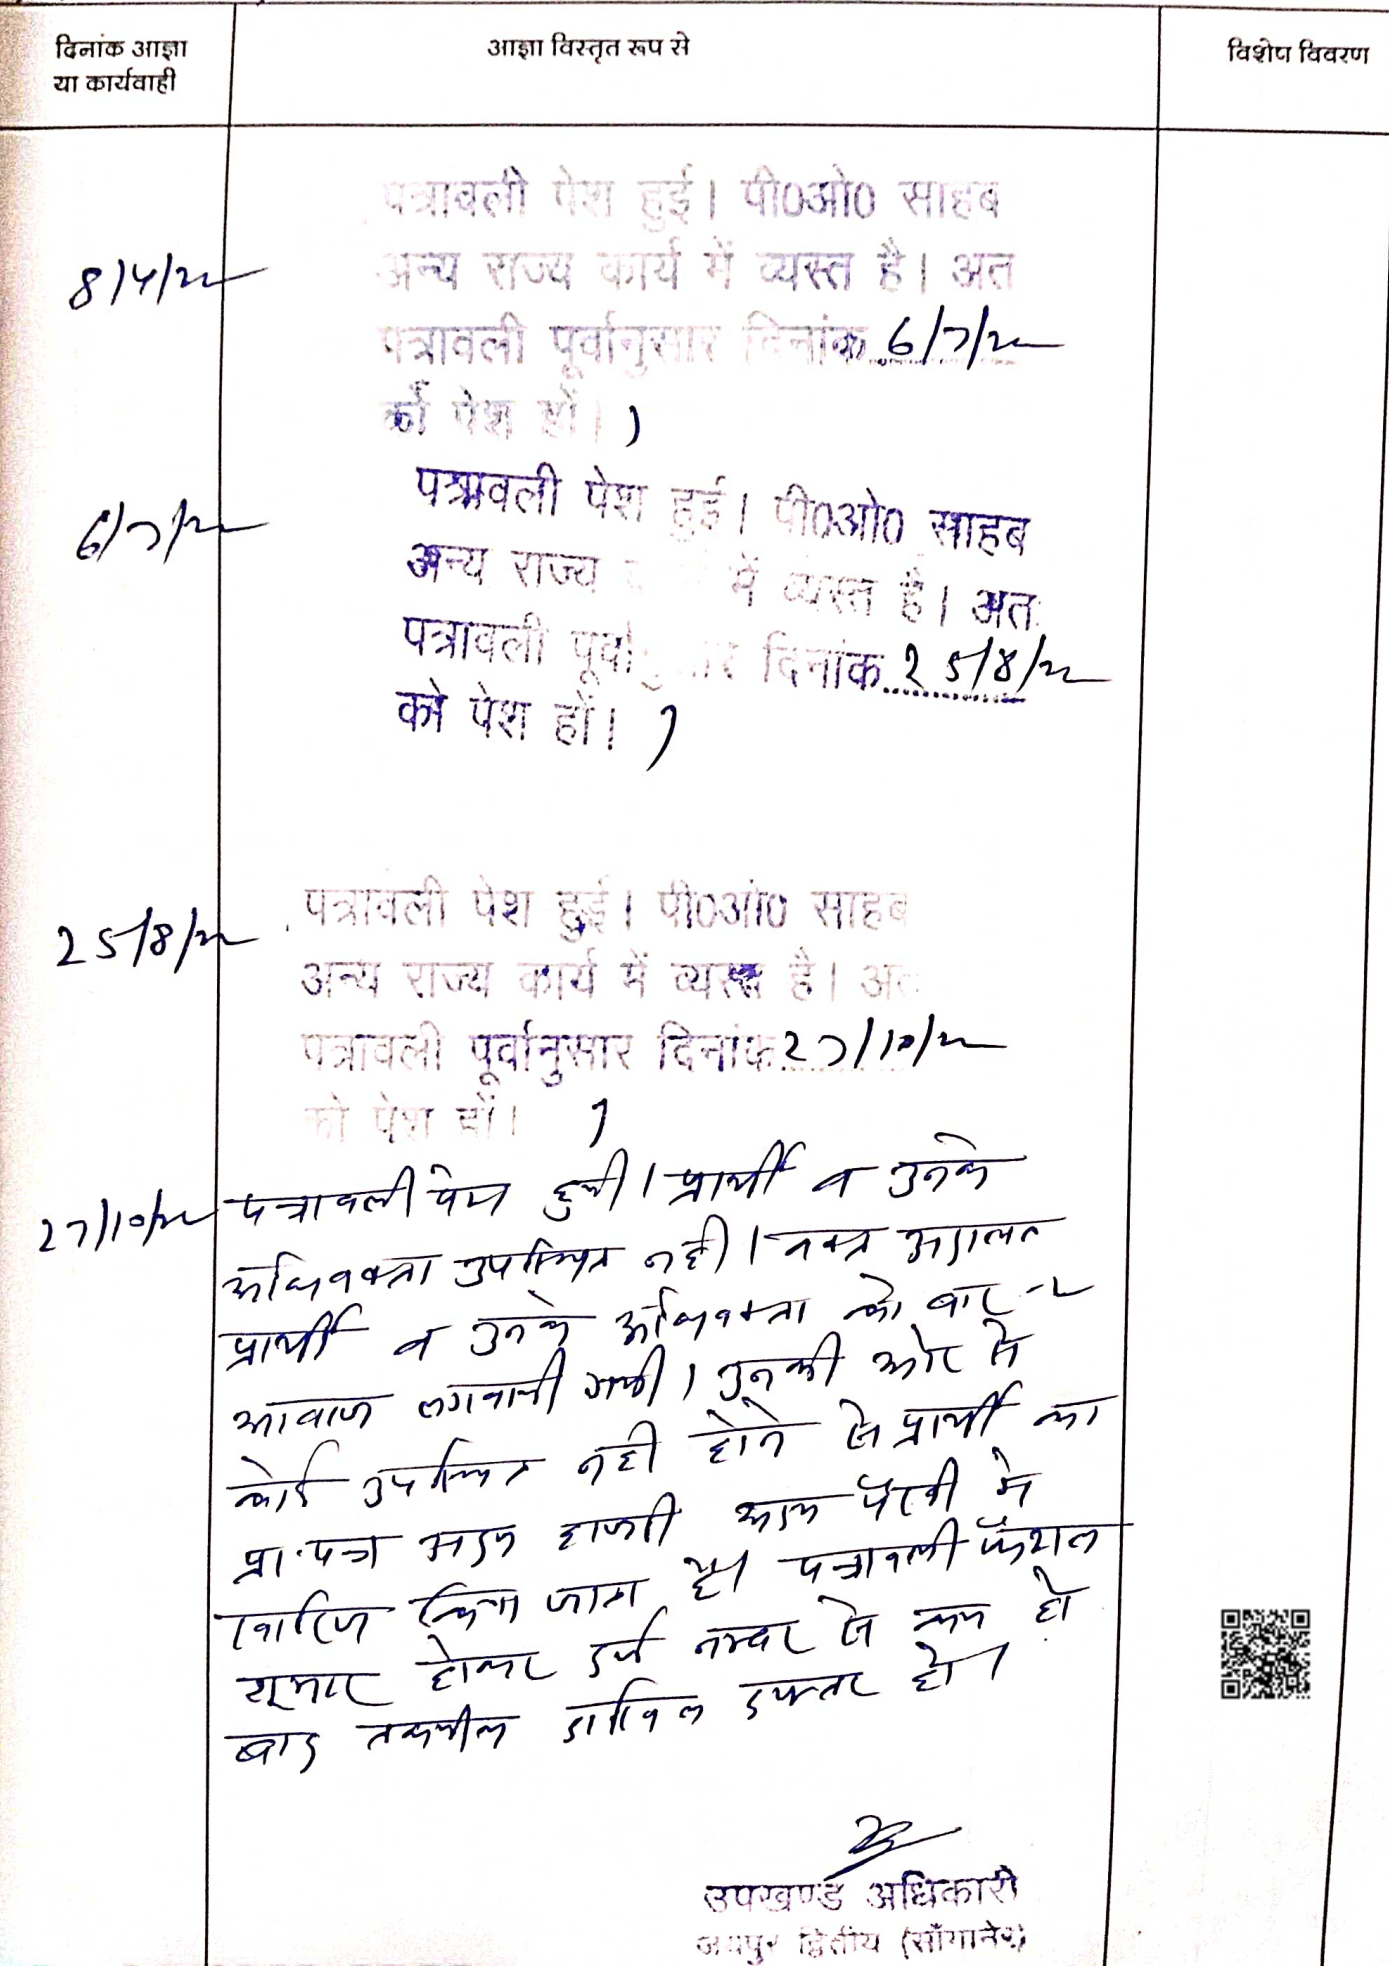 दिनांक आज्ञा
या कार्यवाही
आज्ञा विस्तृत रूप से
विशेष विवरण
पत्रावली पेश हुई। पी0ओ0 साहब
8/4/22
अन्य राज्य कार्य में व्यस्त है। अत
पत्रावली पूर्वानुसार दिनांक 6/7/22
को पेश हों।
पत्रावली पेश हुई। पी0ओ0 साहब
6/7/22
अन्य राज्य में व्यस्त है। अतः
पत्रावली दिनांक 25/8/22
को पेश हों।
पत्रावली पेश हुई। पी0ओ0 साहब
25/8/22
अन्य राज्य कार्य में व्यस्त है। अत
पत्रावली पूर्वानुसार दिनांक 27/10/22
को पेश हों।
27/10/22 पत्रावली पेश हुयी। प्रार्थी व उनके
अधिवक्ता उपस्थित नही। वक्त अदालत
प्रार्थी व उनके अधिवक्ता को बार-2
आवाज लगवायी गयी। उनकी ओर से
कोई उपस्थित नही होने से प्रार्थी का
प्रा.पत्र अदम हाजरी अदम पैरवी मे
खारिज किया जाता है। पत्रावली फैशल
शूमार होकर दर्ज नम्बर से कम हो
बाद तकमील दाखिल दफ्तर हो।
उपखण्ड अधिकारी
जयपुर द्वितीय (साँगानेर)